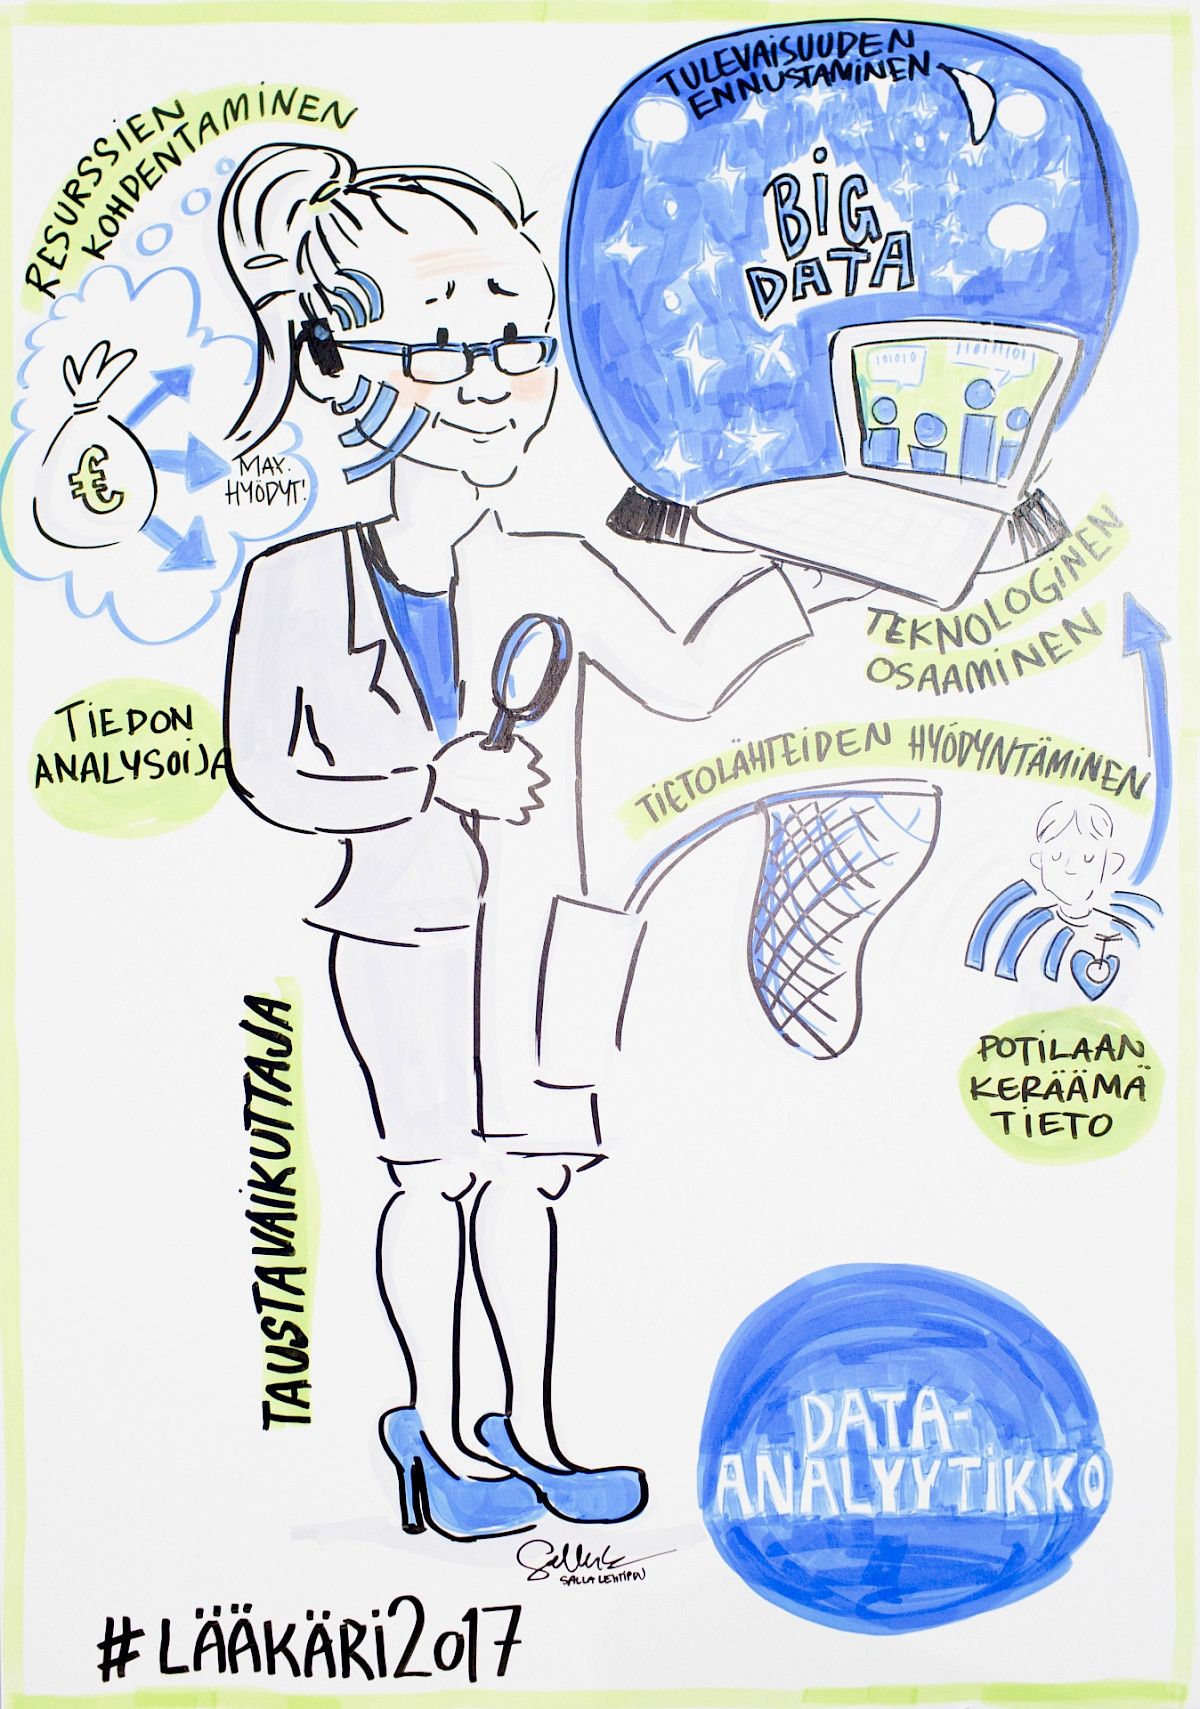 RESURSSIEN
KOHDENTAMINEN
TULEVAISUUDEN
ENNUSTAMINEN
BIG
DATA
101010
MAX.
HYÖDYT!
€
TEKNOLOGINEN
OSAAMINEN
TIEDON
ANALYSOIJA
TIETOLÄHTEIDEN HYÖDYNTÄMINEN
POTILAAN
KERÄÄMÄ
TIETO
TAUSTAVAIKUTTAJA
DATA-
ANALYYTIKKO
SALLA LEHTIPUU
#LÄÄKÄRI2017